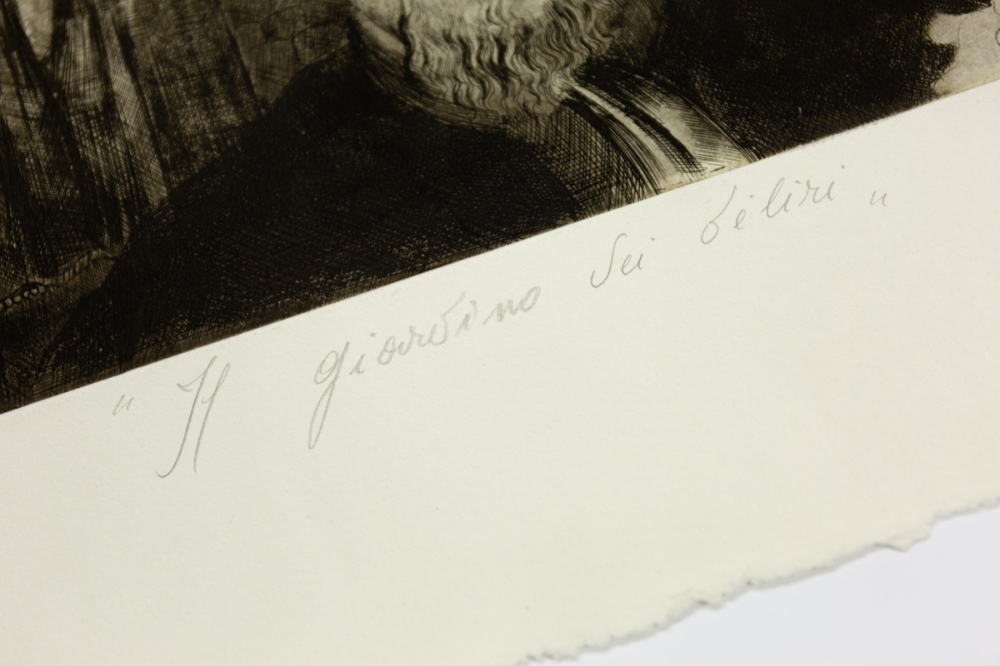 " Il giardino dei deliri "